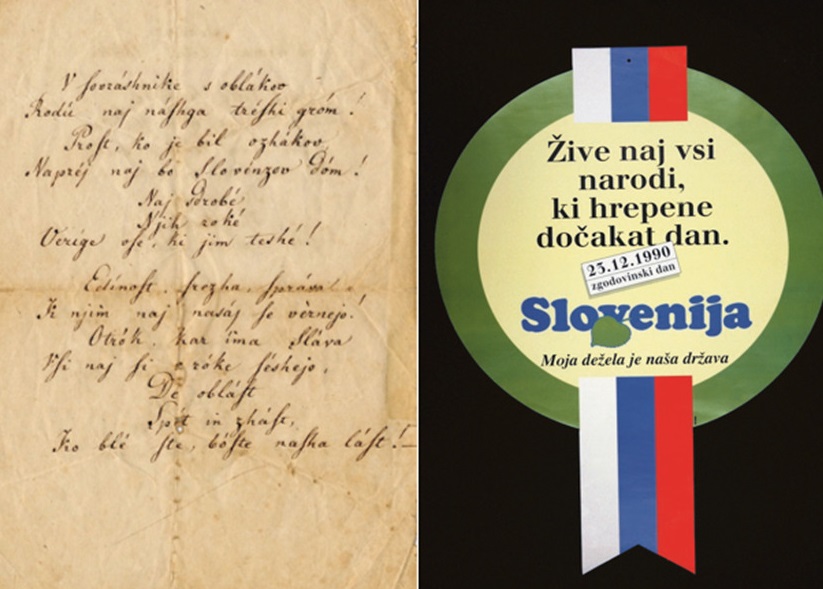 V ſovráshnike s oblákov
Rodú naj náſhga tréſhi gróm!
Proſt, ko je bil ozhákov,
Naprèj naj bo Slovénzov dóm!
Naj sdrobé
Njih roké
Verige oſe, ki jim teshé!
Edínoſt, ſrezha, ſpráva
K njim naj nasáj ſe vèrnejo!
Otrók, kar ima Sláva
Vſi naj ſi v róke ſéshejo,
De obláſt
Spèt in zháſt,
ſte, bóſte naſha láſt!—
Žive naj vsi
narodi,
ki hrepene
dočakat dan.
23.12.1990
zgodovinski dan
Slovenija
Moja dežela je naša država